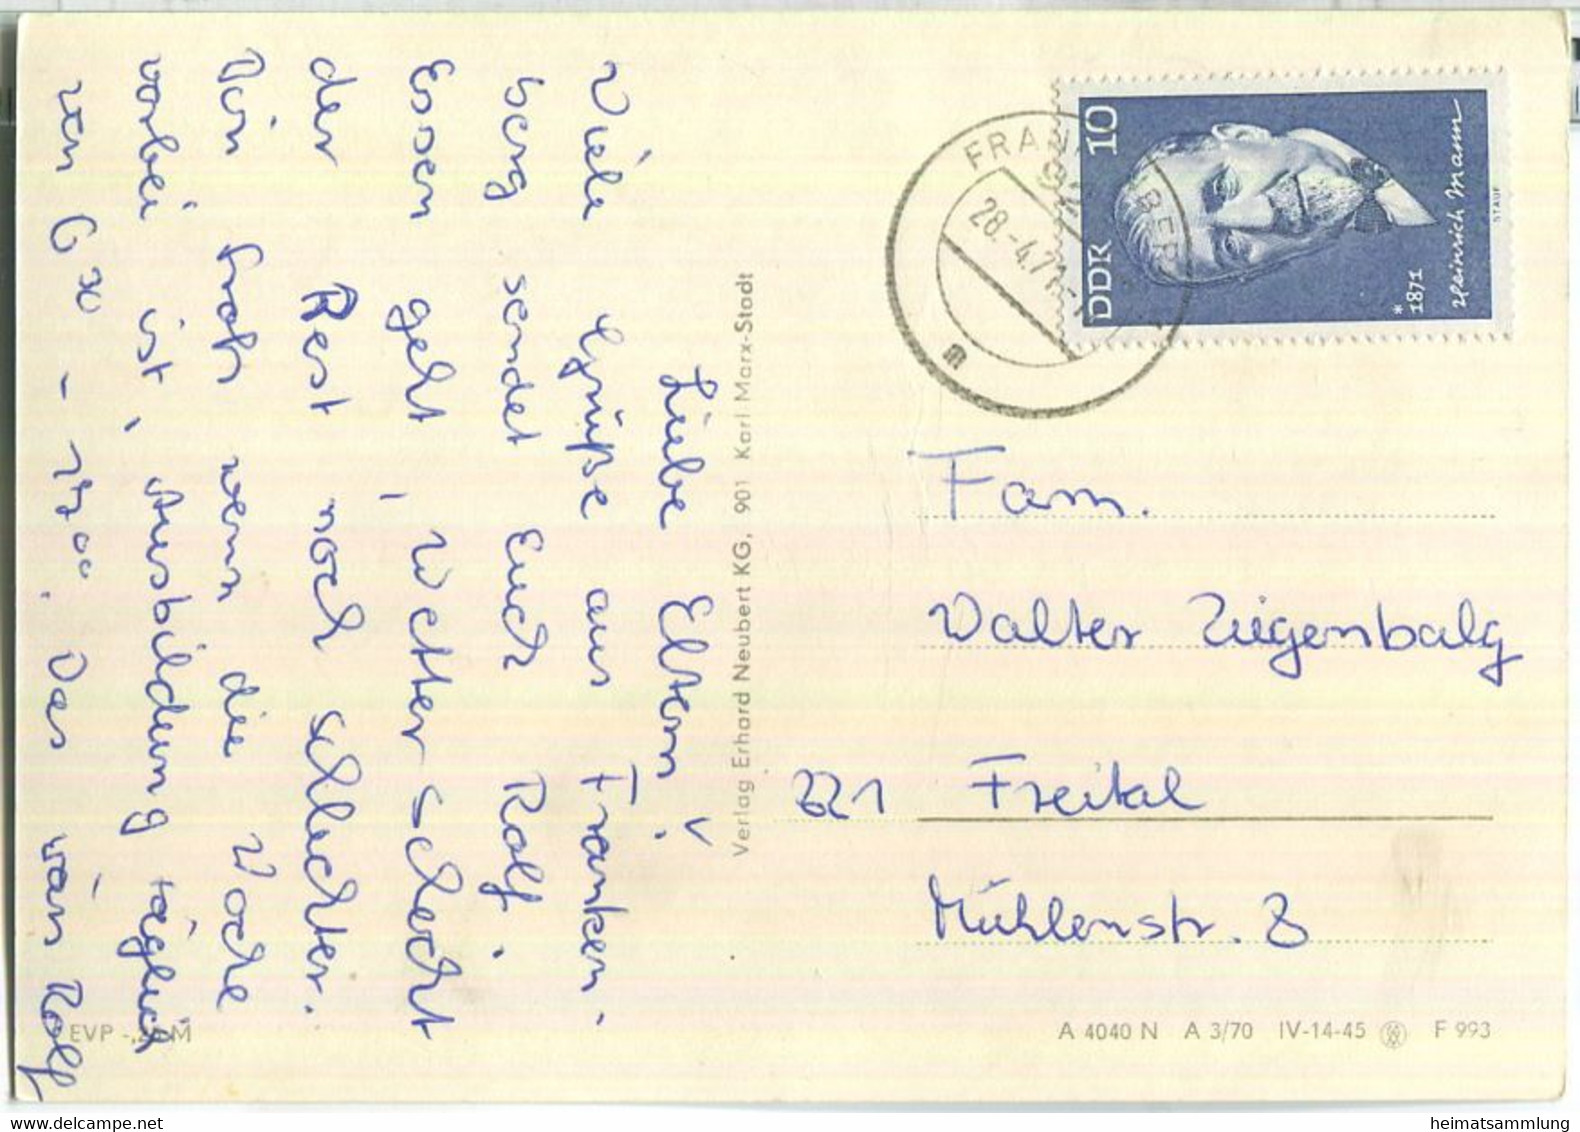 Liebe Eltern!
Viele Grüße aus Franken-
berg sendet Euch Rolf.
Essen geht, Wetter schlecht
der Rest noch schlechter.
Bin froh wenn die Woche
vorbei ist, Ausbildung täglich
von 6³⁰ - 17⁰⁰. Das wärs Rolf
Verlag Erhard Neubert KG, 901 Karl Marx-Stadt
EVP -,25 M
DDR 10
* 1871
Heinrich Mann
STAUF
FRANKENBERG
28.-4.71
m
Fam.
Walter Ziegenbalg
821 Freital
Mühlenstr. 8
A 4040 N A 3/70 IV-14-45 F 993
heimatsammlung
www.delcampe.net